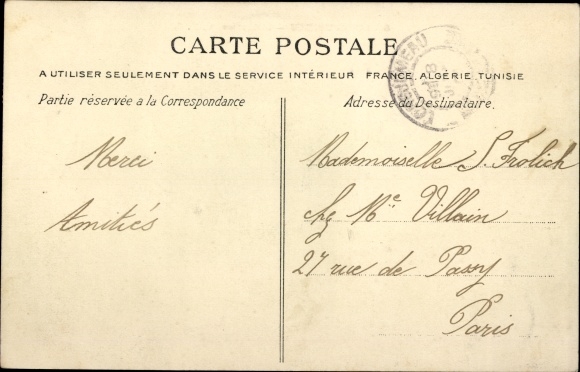 CARTE POSTALE
A UTILISER SEULEMENT DANS LE SERVICE INTÉRIEUR FRANCE, ALGÉRIE, TUNISIE
Partie réservée à la Correspondance
Adresse du Destinataire.
Merci
Amitiés
Mademoiselle S. Frolich
chz Me Villain
27 rue de Passy
Paris